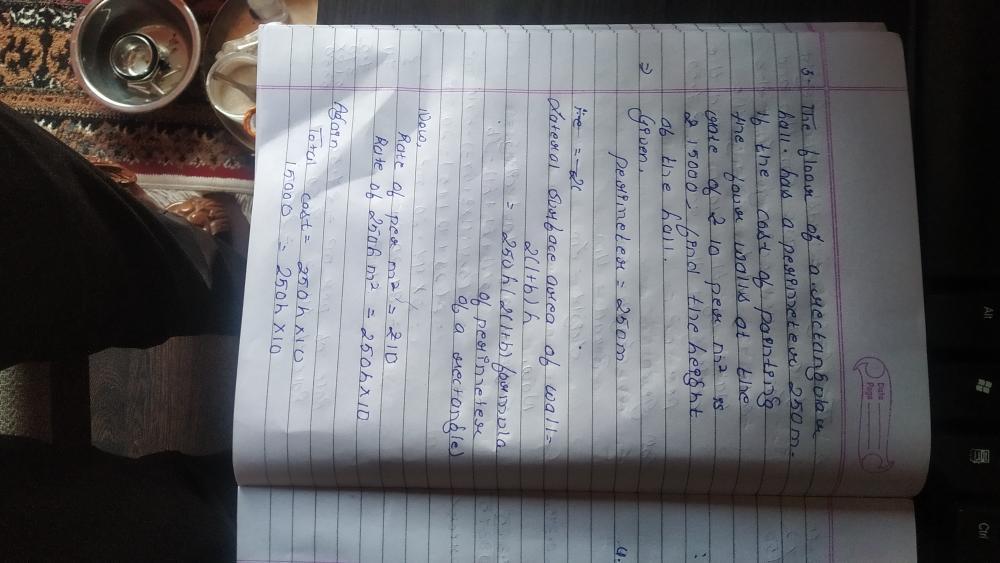 Date
Page
3. The floor of a rectangular
hall has a perimeter 250m.
If the cost of painting
the four walls at the
rate of ₹ 10 per m² is
₹ 15000, find the height
of the hall.
⇒ Given,
perimeter = 250m
Lateral surface area of wall =
2(l+b)h
= 250h (2(l+b) formula
of perimeter
of a rectangle)
Now,
Rate of per m² = ₹10
Rate of 250h m² = 250h×10
Again
Total cost = 250h×10
15000 = 250h×10
4.
Alt
Ctrl